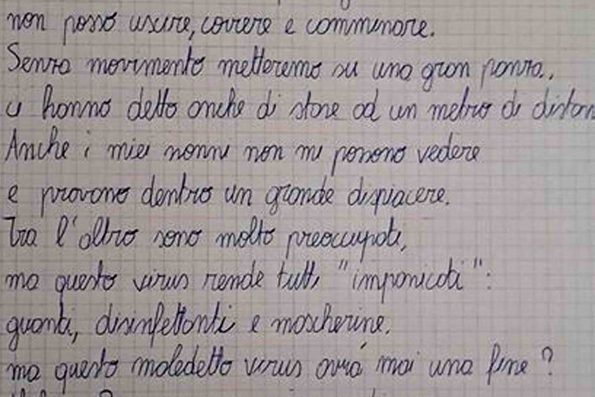 non posso uscire, correre e camminare.
Senza movimento metteremo su una gran panza.
ci hanno detto anche di stare ad un metro di distan
Anche i miei nonni non mi possono vedere
e provano dentro un grande dispiacere.
Tra l'altro sono molto preoccupati,
ma questo virus rende tutti "impanicati":
guanti, disinfettanti e mascherine.
ma questo maledetto virus avrá mai una fine?